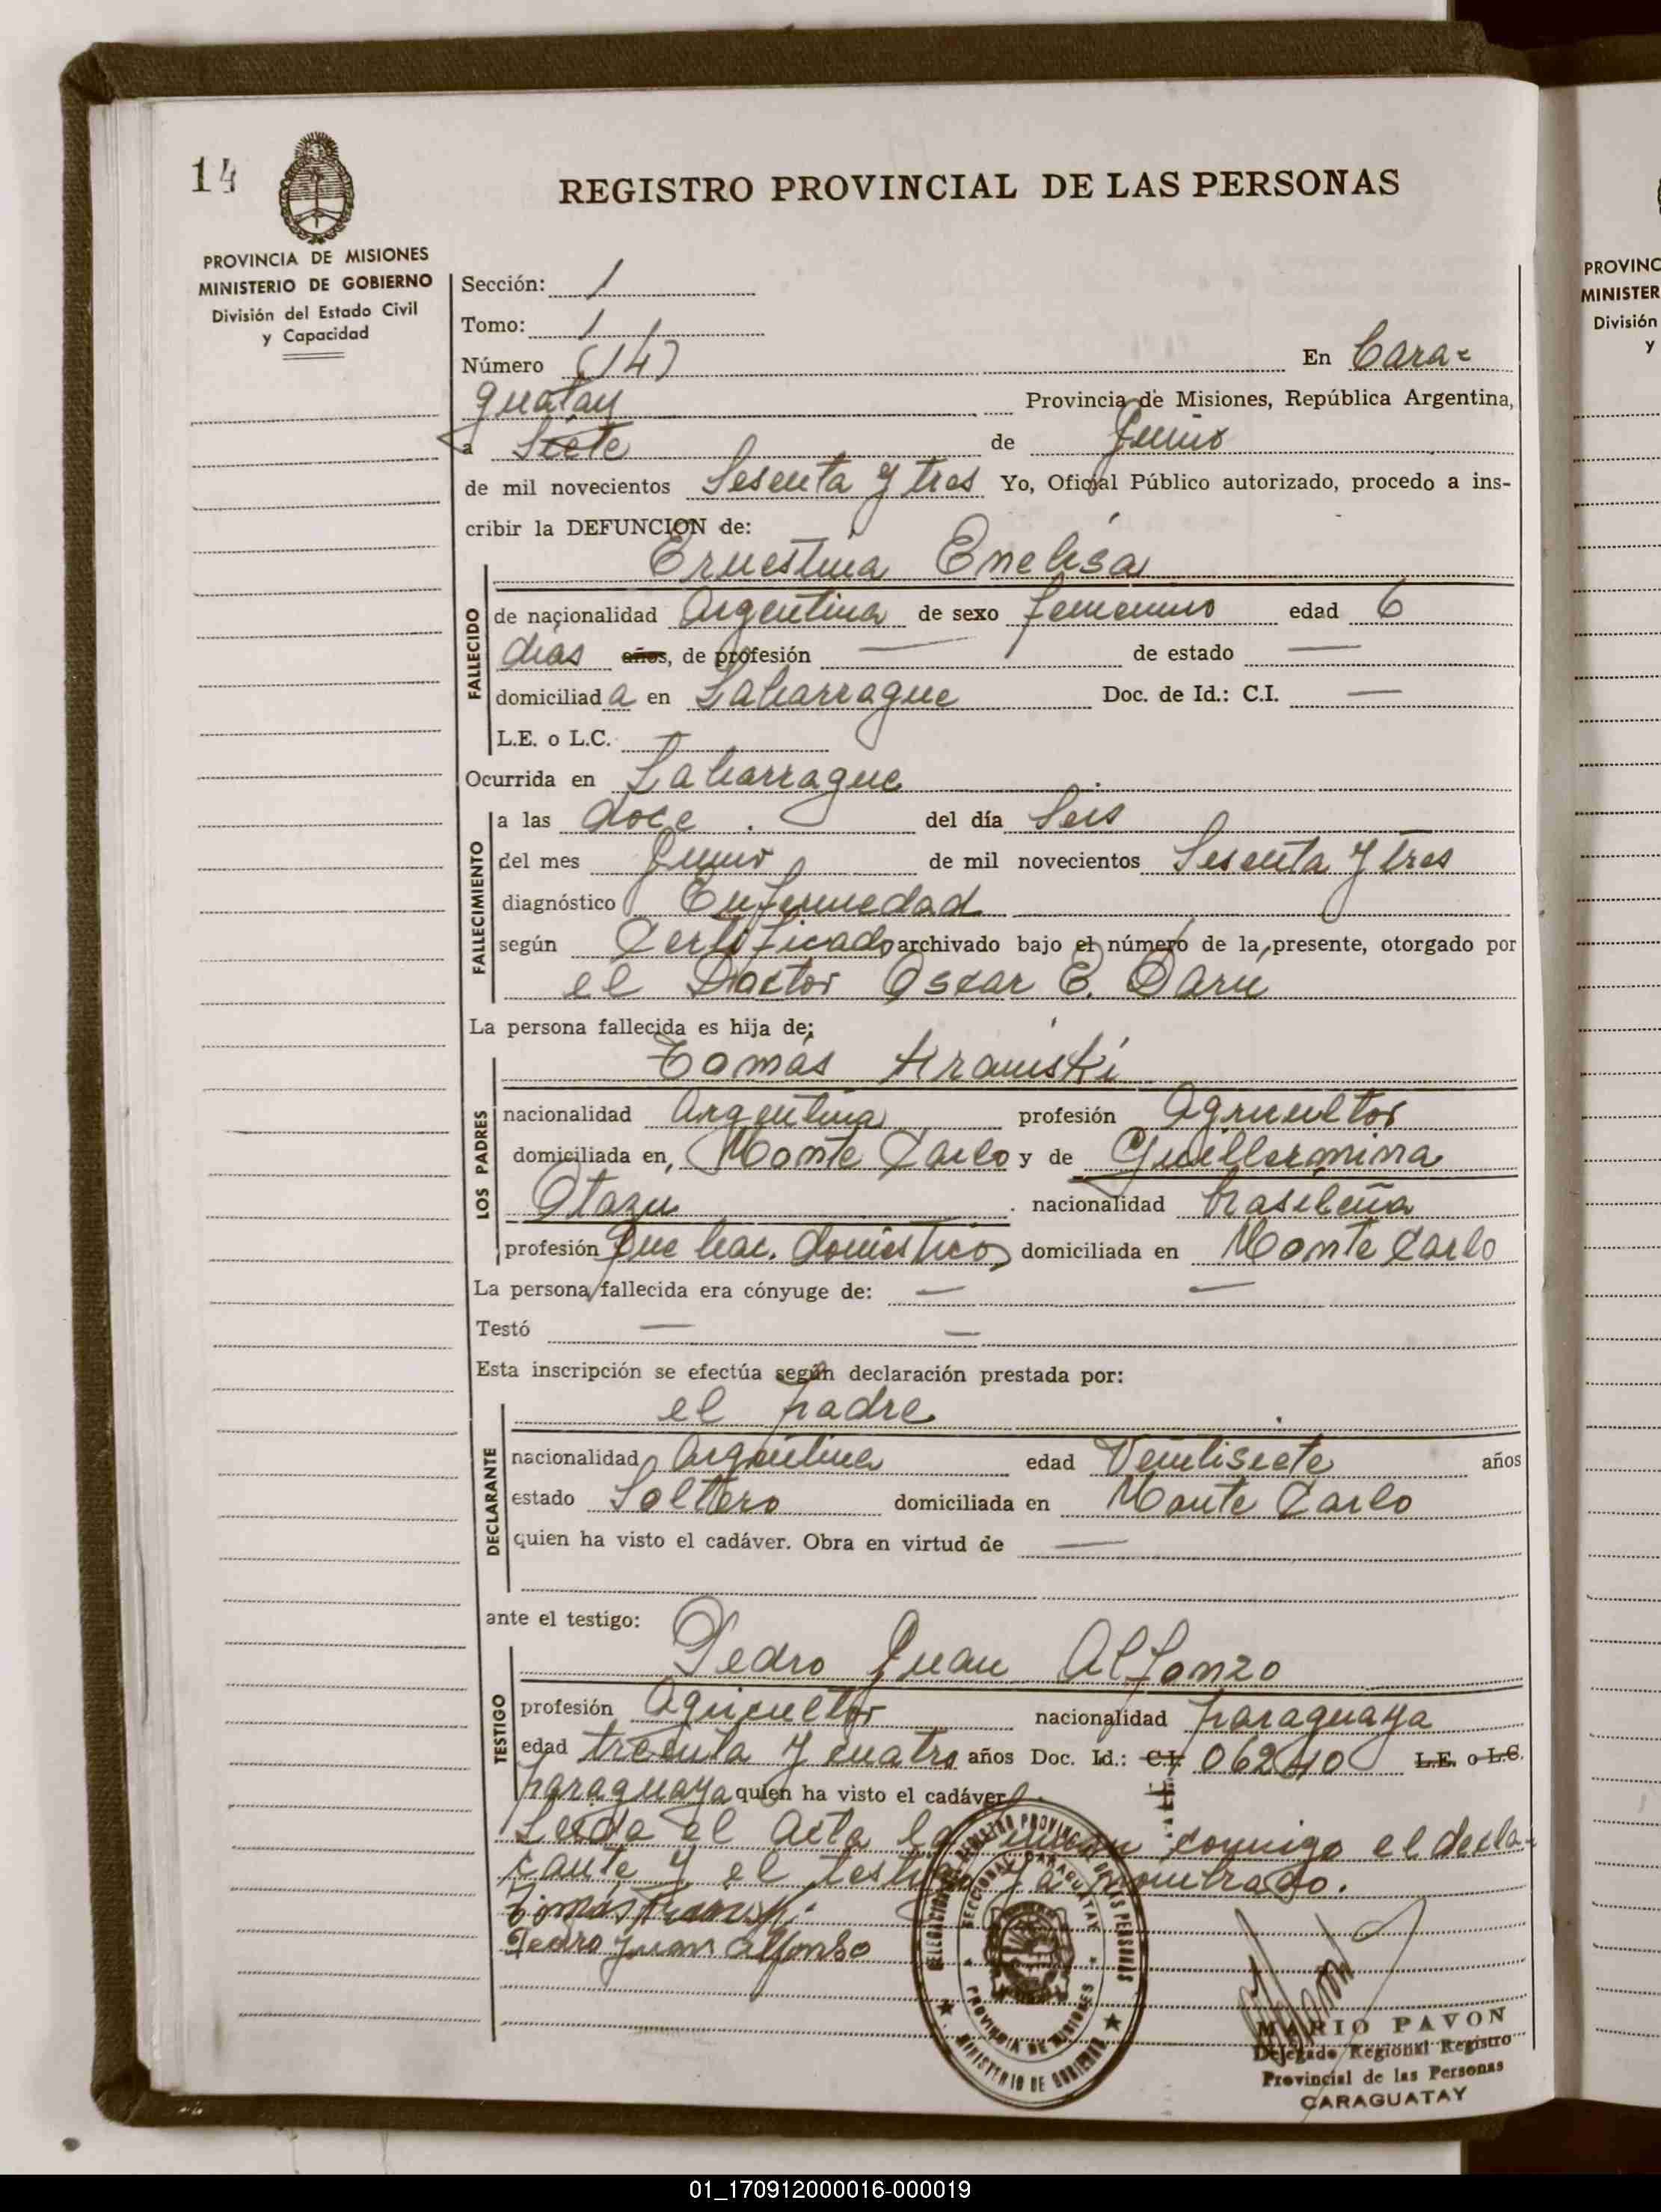 14
REGISTRO PROVINCIAL DE LAS PERSONAS
PROVINCIA DE MISIONES
MINISTERIO DE GOBIERNO
División del Estado Civil
y Capacidad
Sección: 1
Tomo: 1
Número (14) En Cara=
guatay Provincia de Misiones, República Argentina,
a Siete de Junio
de mil novecientos Sesenta y tres Yo, Oficial Público autorizado, procedo a ins-
cribir la DEFUNCION de:
Ernestina Enelisa
FALLECIDO
de nacionalidad Argentina de sexo femenino edad 6
dias años, de profesión — de estado —
domiciliada en Laharrague Doc. de Id.: C.I. —
L.E. o L.C. —
Ocurrida en Laharrague
FALLECIMIENTO
a las doce del día Seis
del mes Junio de mil novecientos Sesenta y tres
diagnóstico Enfermedad
según Certificado archivado bajo el número de la presente, otorgado por
el Doctor Oscar E. Darú
La persona fallecida es hija de:
LOS PADRES
Tomás
nacionalidad Argentina profesión Agricultor
domiciliada en, Monte Carlo y de Guillermina
Otazu nacionalidad brasileña
profesión Que hac. domésticos domiciliada en Monte Carlo
La persona fallecida era cónyuge de: — —
Testó — —
Esta inscripción se efectúa según declaración prestada por:
el padre
DECLARANTE
nacionalidad Argentina edad Veintisiete años
estado Soltero domiciliada en Monte Carlo
quien ha visto el cadáver. Obra en virtud de —
ante el testigo:
Pedro Juan Alfonzo
TESTIGO
profesión Agricultor nacionalidad paraguaya
edad treinta y cuatro años Doc. Id.: C.I. 06240 L.E. o L.C.
paraguaya quien ha visto el cadáver.
Leida el Acta la firman conmigo el decla-
rante y el testigo ya nombrado.
Tomás
Pedro Juan Alfonso
DELEGACION REGISTRO PROVINCIAL DE LAS PERSONAS
SECCIONAL CARAGUATAY
PROVINCIA DE MISIONES
MINISTERIO DE GOBIERNO
MARIO PAVON
Delegado Regional Registro
Provincial de las Personas
CARAGUATAY
PROVINC
MINISTER
División
y
01_170912000016-000019